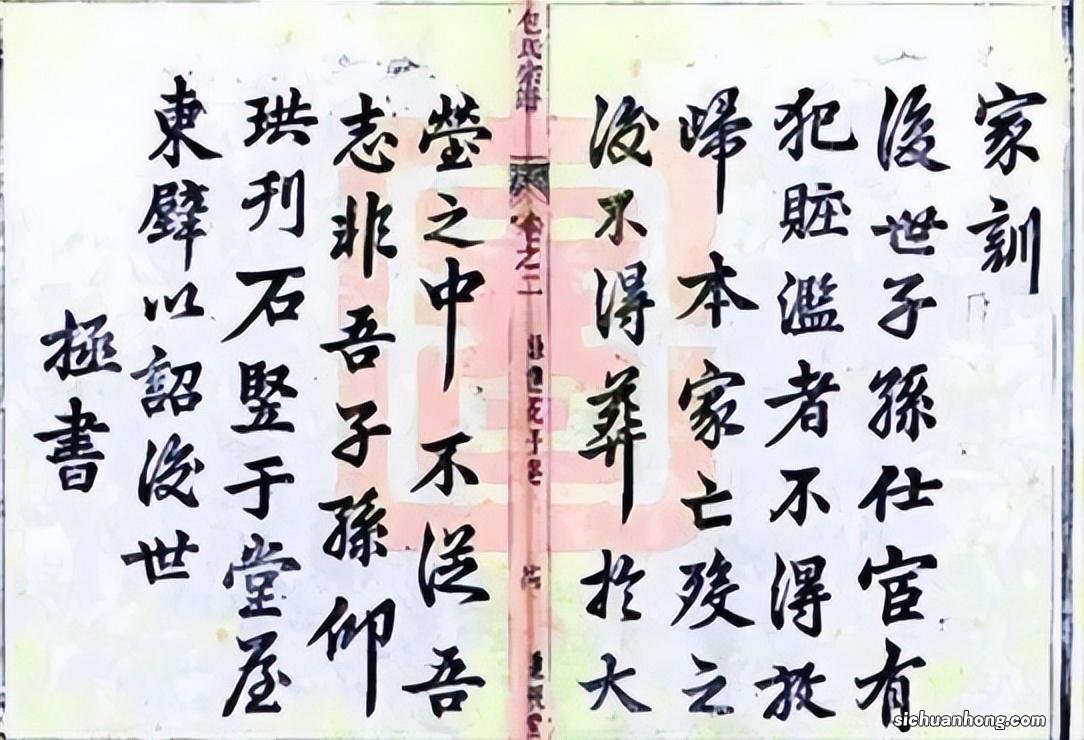 家訓
後世子孫仕宦有
犯賍濫者不得放
歸本家亡歿之
後不得葬於大
包氏宗譜 卷之二
塋之中不從吾
志非吾子孫仰
珙刊石竪于堂屋
東壁以詔後世
極書
sichuanhong.com